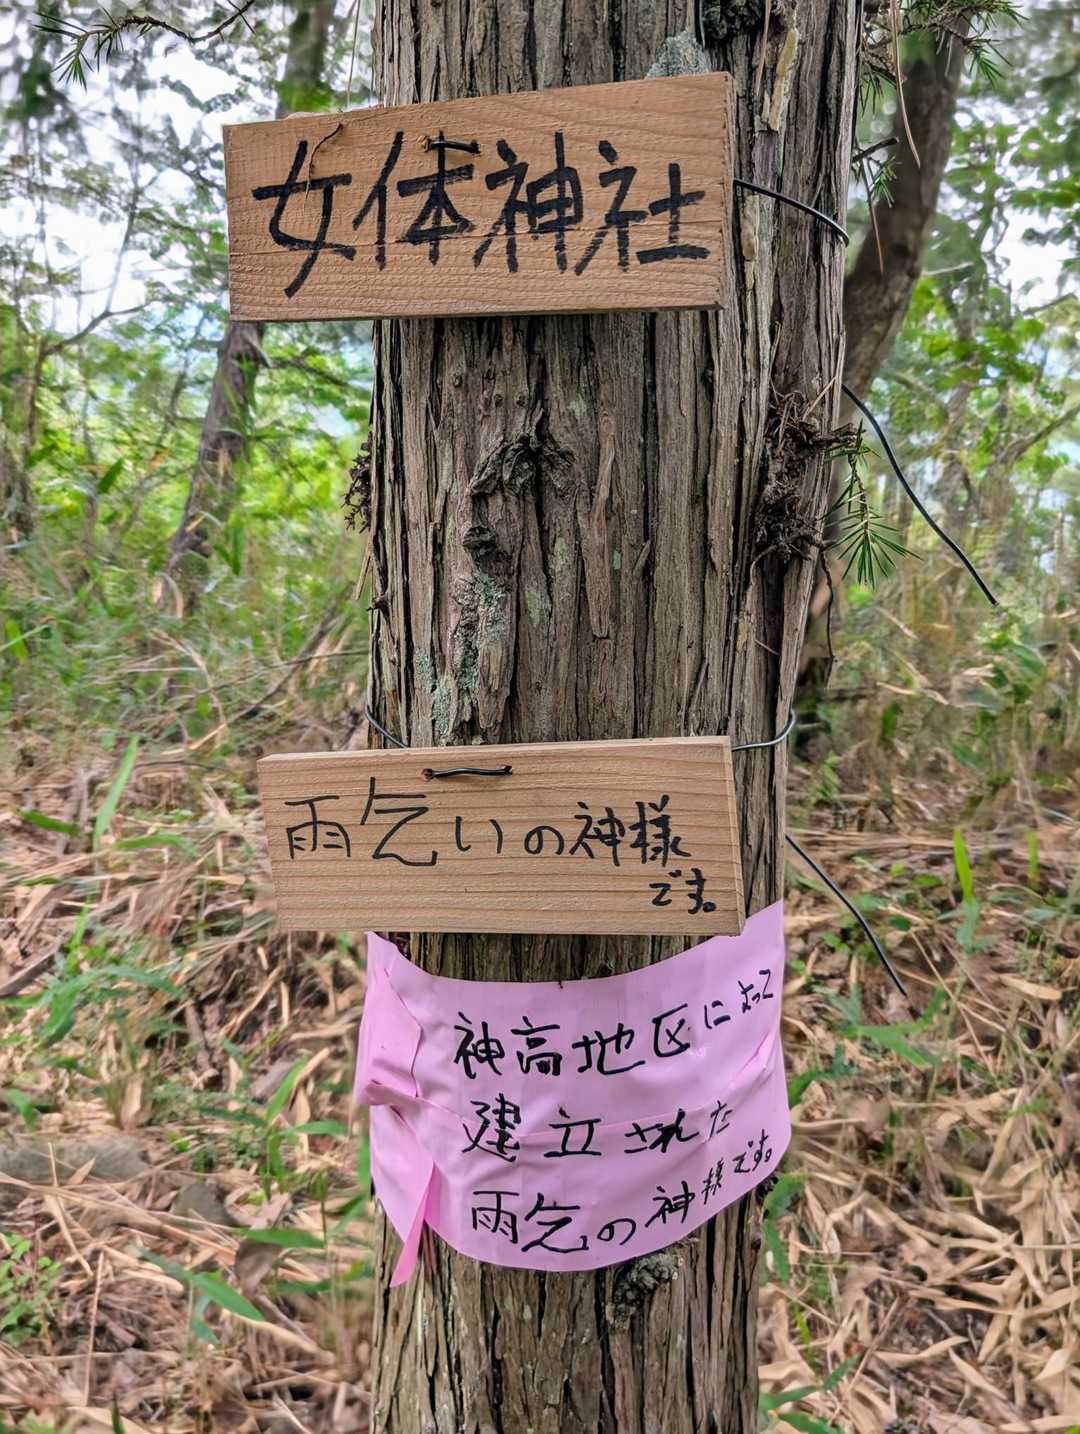 女体神社
雨乞いの神様
です。
神高地区によって
建立された
雨乞の神様です。